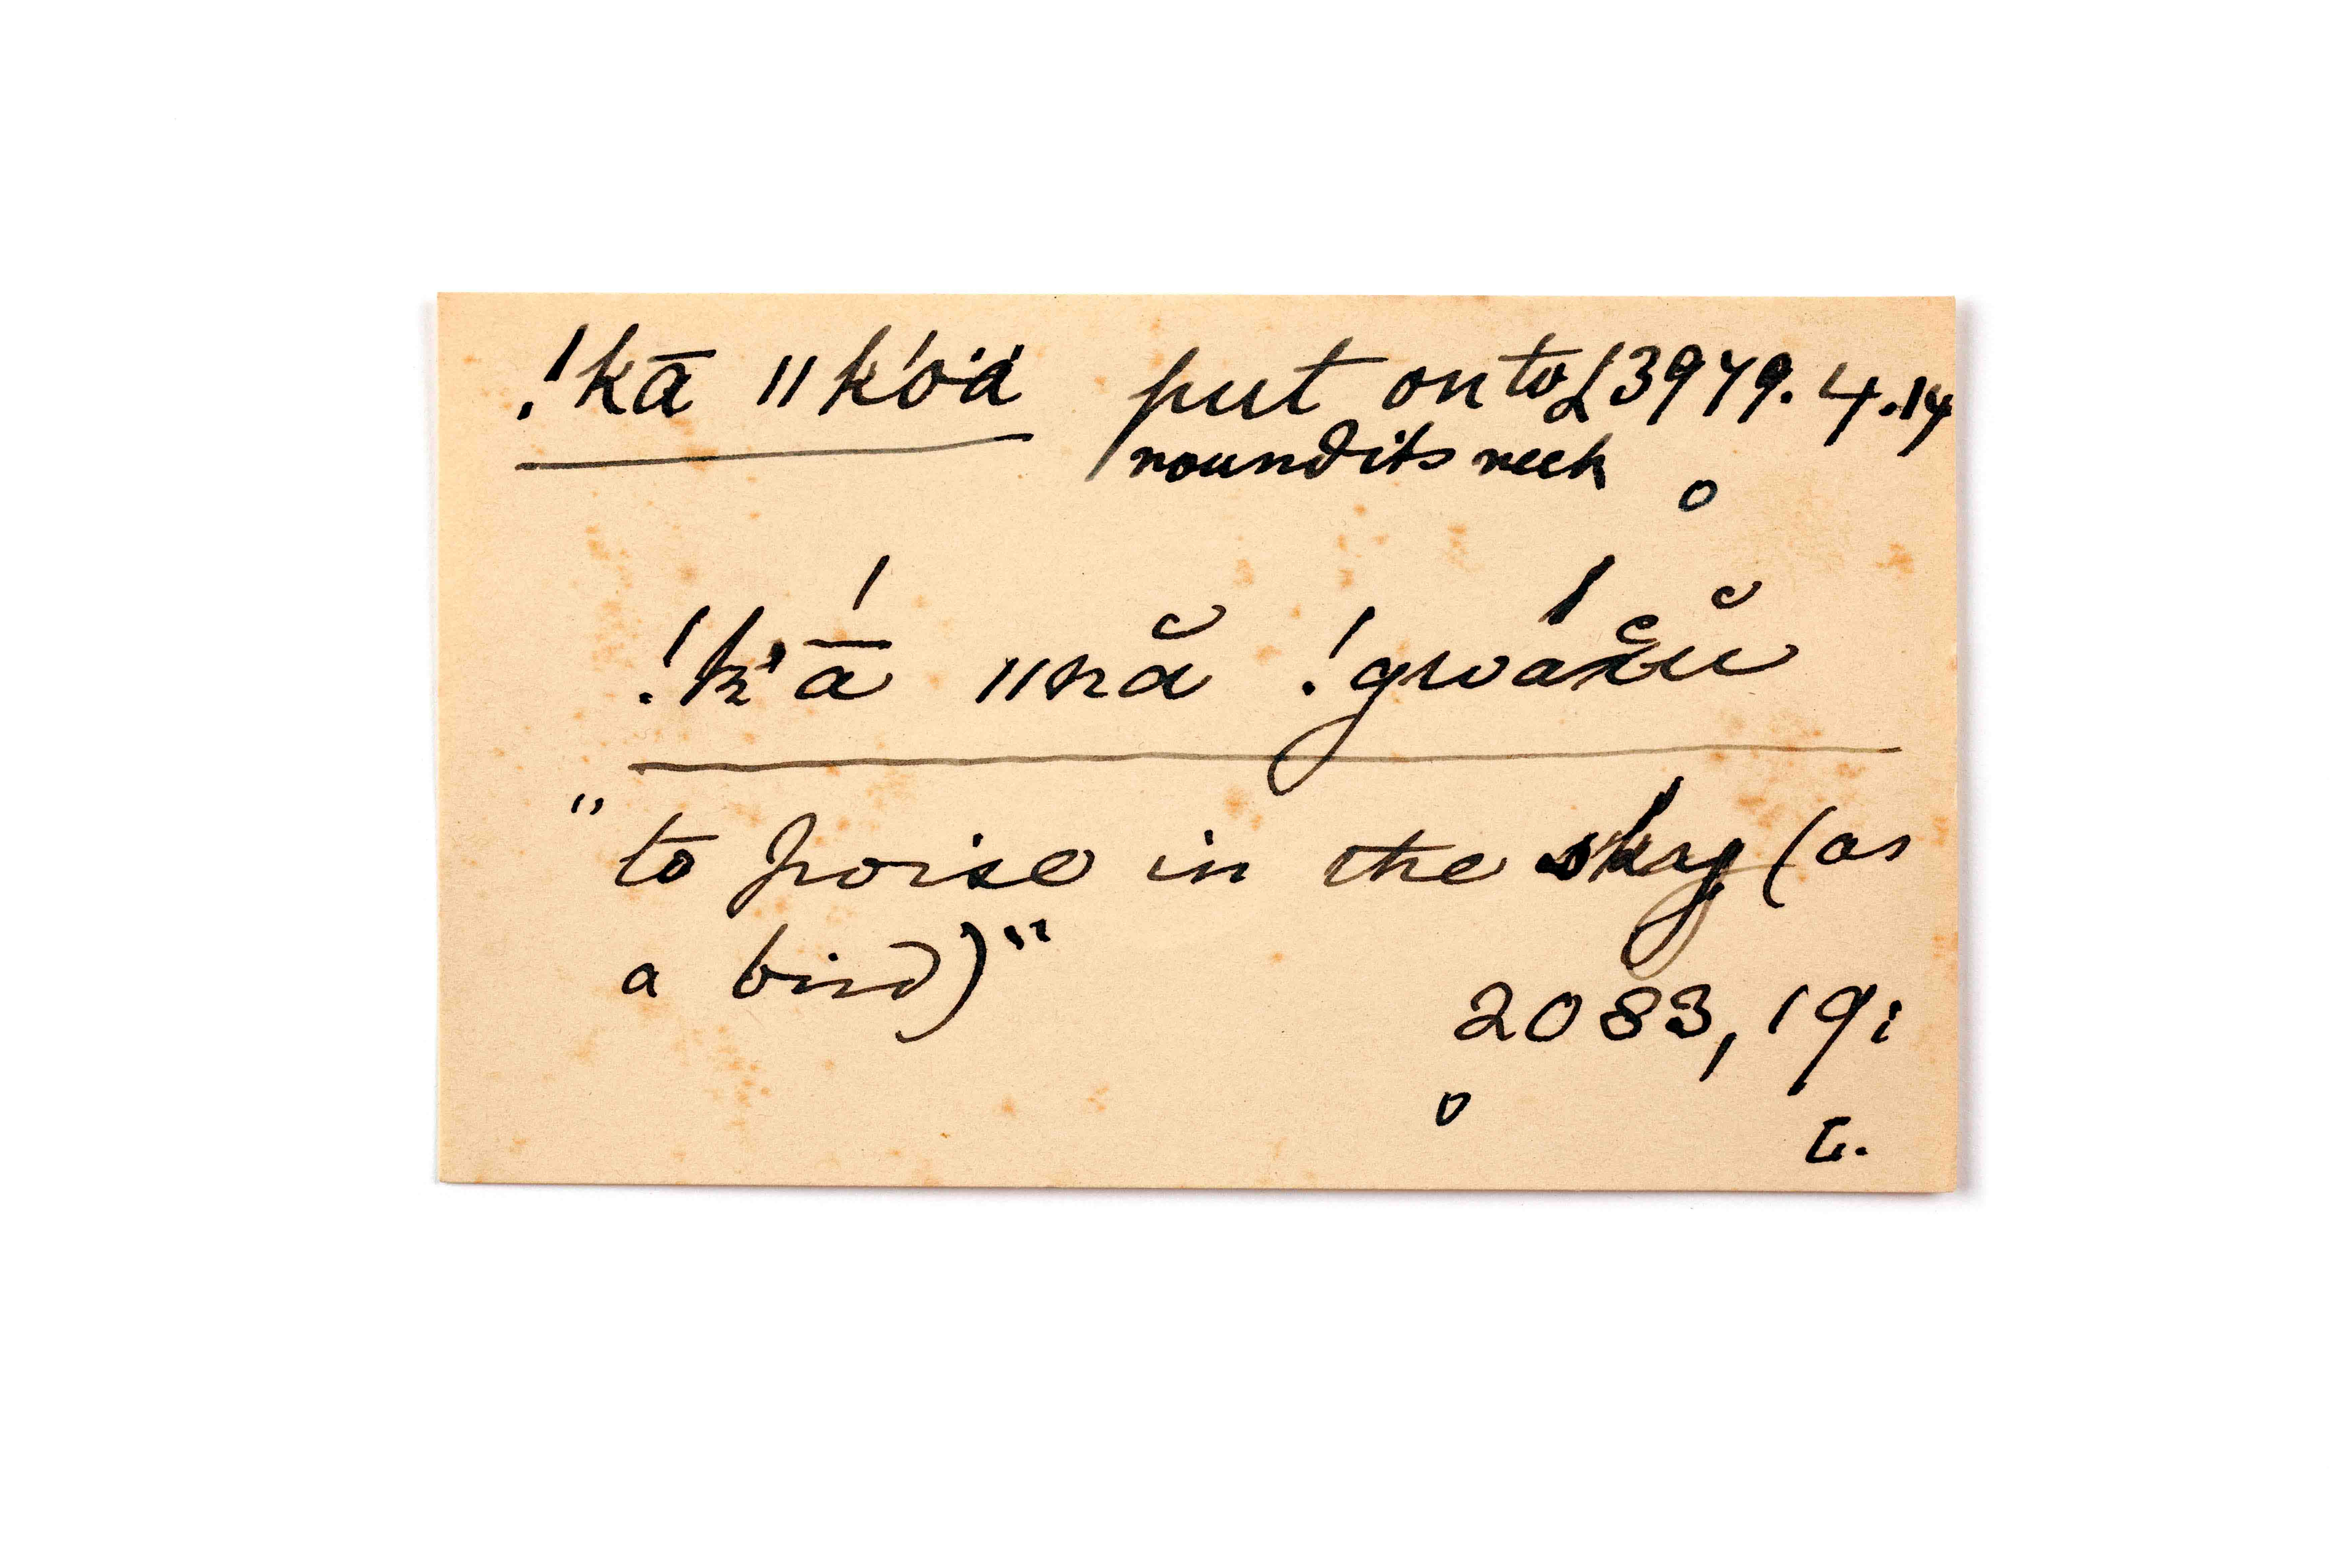 !kā ǁk'o'a put onto £3979.4.14
round its neck o
!k'ā́ ǁnă !gwáxŭ
"to poise in the sky (as
a bird)"
2083, 19;
o
L.